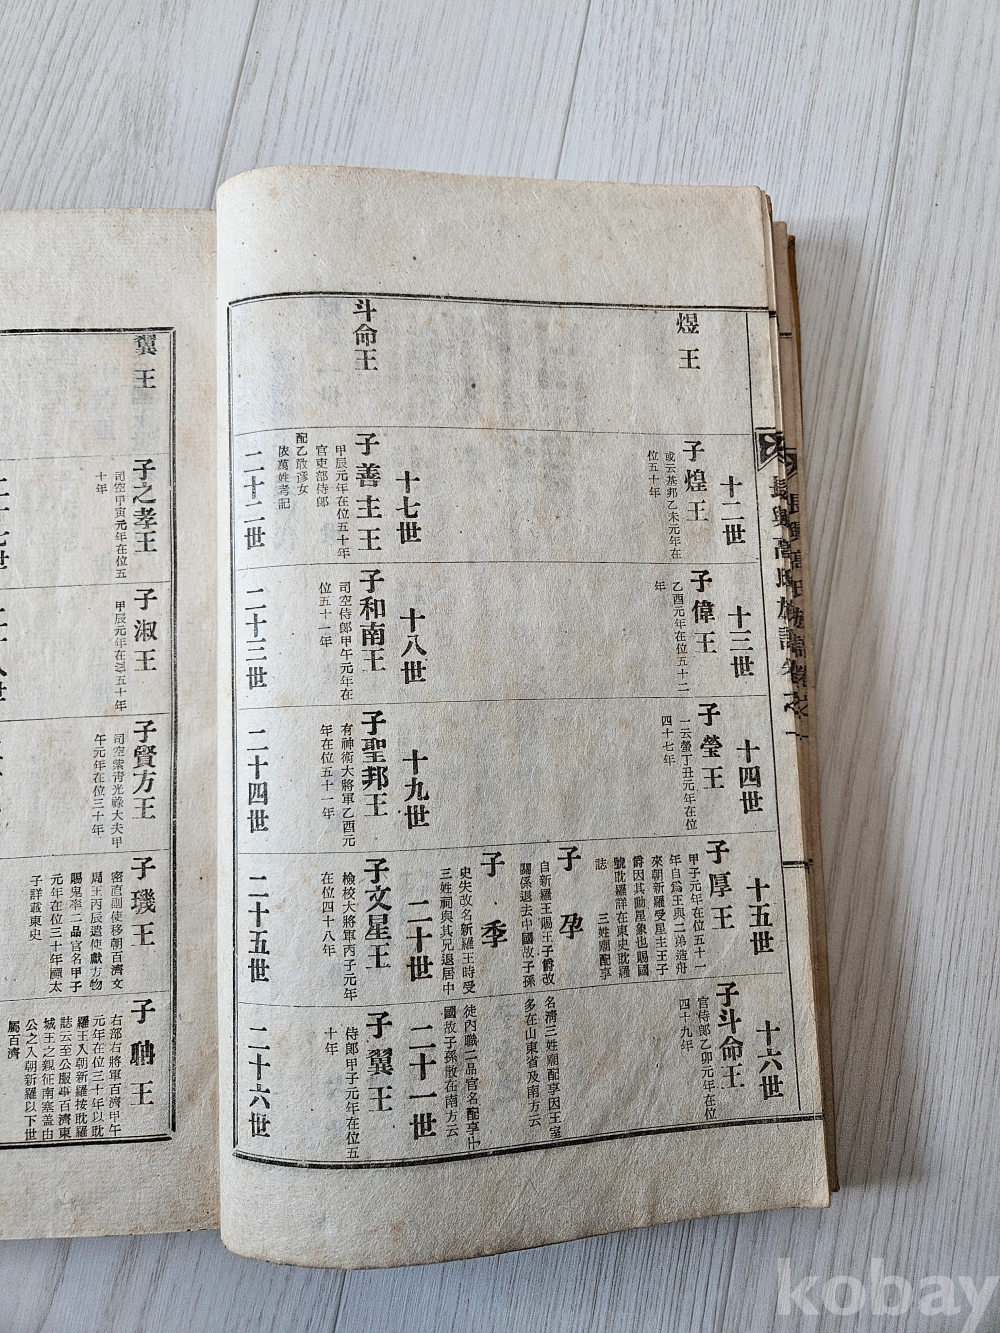 長興高氏族譜卷之一
煜王
十二世
子煌王
或云基邦乙未元年在
位五十年
十三世
子偉王
乙酉元年在位五十二
年
十四世
子瑩王
一云螢丁丑元年在位
四十七年
十五世
子厚王
甲子元年在位五十一
年自爲王與二弟造舟
來朝新羅受星主王子
爵因其動星象也賜國
號耽羅詳在東史耽羅
誌 三姓廟配享
子孕
自新羅王賜王子爵改
關係退去中國故子孫
子季
史失改名新羅王時受
三姓祠與其兄退居中
十六世
子斗命王
官侍郞乙卯元年在位
四十九年
名淸三姓廟配享因王室
多在山東省及南方云
徒內職二品官名配享
國故子孫散在南方云
斗命王
十七世
子善主王
甲辰元年在位五十年
官吏部侍郞
配乙敢彦女
依萬姓考記
十八世
子和南王
司空侍郞甲午元年在
位五十一年
十九世
子聖邦王
有神術大將軍乙酉元
年在位五十一年
二十世
子文星王
檢校大將軍丙子元年
在位四十八年
二十一世
子翼王
侍郞甲子元年在位五
十年
二十二世
二十三世
二十四世
二十五世
二十六世
翼王
子之孝王
司空甲寅元年在位五
十年
子淑王
甲辰元年在位五十年
子賢方王
司空紫靑光祿大夫甲
午元年在位三十年
子璣王
密直副使移朝百濟文
周王丙辰遣使獻方物
賜恩率二品官名甲子
元年在位三十年顯太
子詳載東史
子聃王
右部右將軍百濟甲午
元年在位三十年以耽
羅王入朝新羅按耽羅
誌云至公服事百濟東
城王之親征南塞盖由
公之入朝新羅以下世
屬百濟
kobay